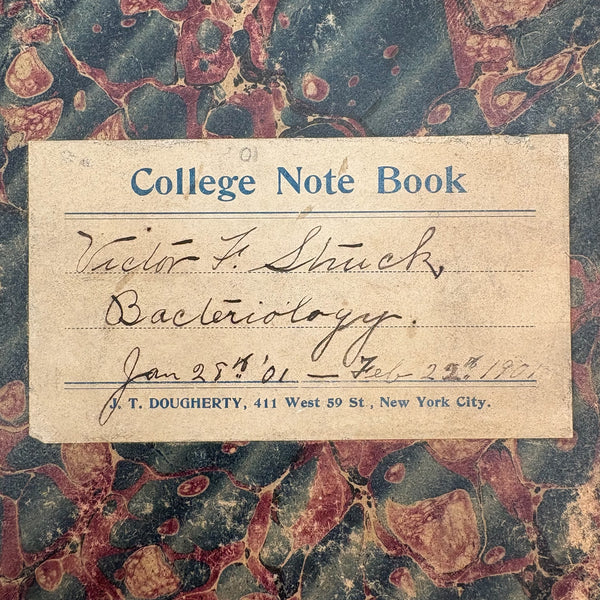 College Note Book
Victor F. Struck,
Bacteriology.
Jan 28th '01 — Feb 22nd, 1901
J. T. DOUGHERTY, 411 West 59 St., New York City.